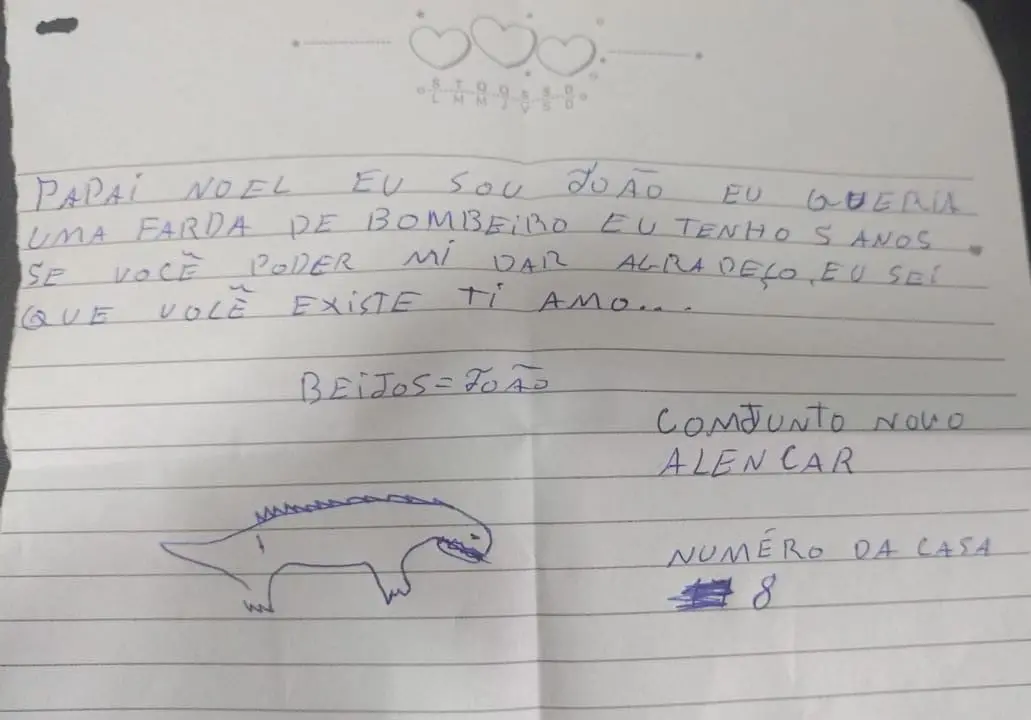 S T Q Q S S D
L M M J V S D
PAPAi NOEL EU SOU JOÃO EU QUERIA
UMA FARDA DE BOMBEiRO EU TENHO 5 ANOS.
SE VOCÊ PODER Mi DAR AGRADEÇO. EU SEi
QUE VOCÊ EXiSTE Ti AMO...
BEiJOS = JOÃO
COMJUNTO NOVO
ALENCAR
NUMÉRO DA CASA
8